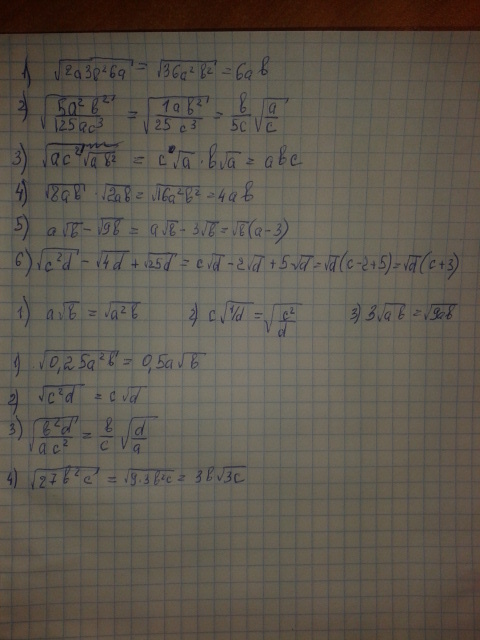 1) √2a3b²6a = √36a²b² = 6ab
2) √5a²b²/125ac³ = √1ab²/25c³ = b/5c √a/c
3) √ac² √ab² = c√a · b√a = abc
4) √8ab · √2ab = √16a²b² = 4ab
5) a√b - √9b = a√b - 3√b = √b(a-3)
6) √c²d - √4d + √25d = c√d - 2√d + 5√d = √d(c-2+5) = √d(c+3)
1) a√b = √a²b 2) c√1/d = √c²/d 3) 3√ab = √9ab
1) √0,25a²b = 0,5a√b
2) √c²d = c√d
3) √b²d/ac² = b/c √d/a
4) √27b²c = √9·3b²c = 3b√3c